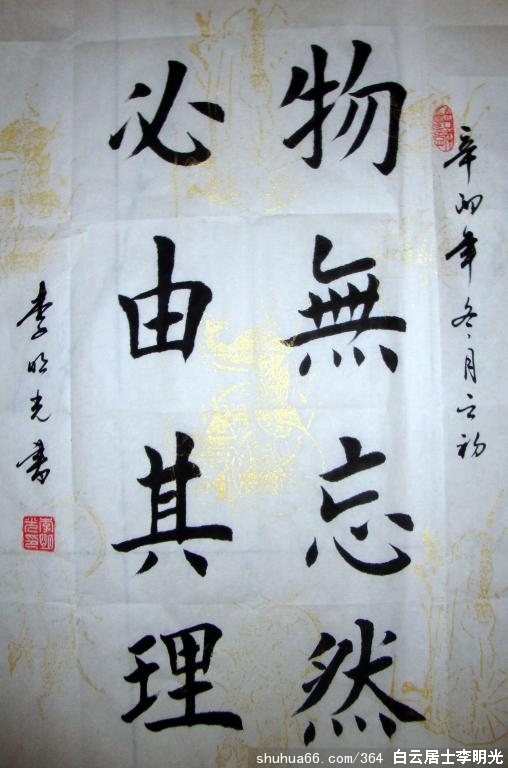 辛卯年冬月之初
物無忘然
必由其理
李明光書
李明光印
shuhua66.com/364 白云居士李明光